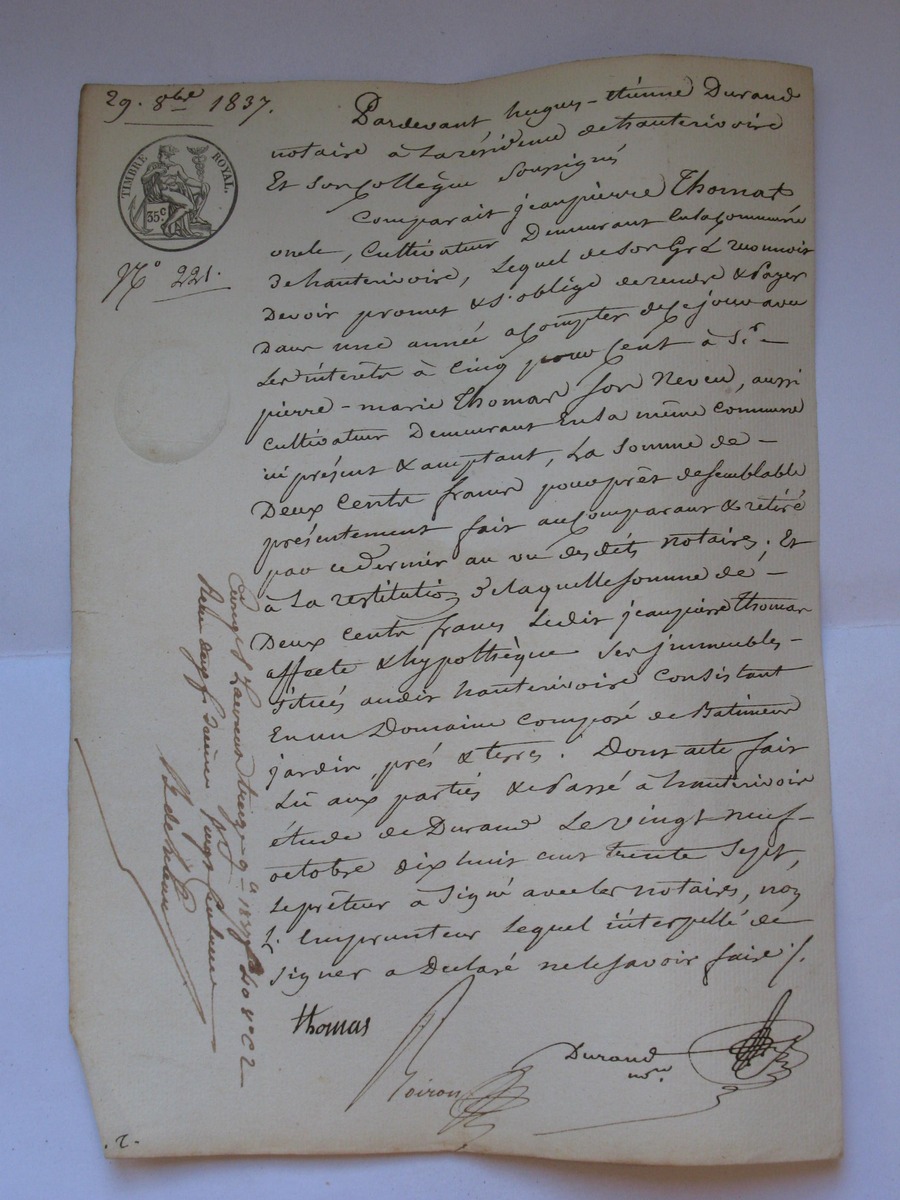 29. 8bre 1837.
TIMBRE ROYAL.
35 c
N° 221.
Pardevant hugues-étienne Durand
notaire à la résidence de hauterivoire
Et son Collègue soussignés
Comparait jeanpierre Thomas
oncle, Cultivateur Demeurant En la Commune
de hauterivoire, Lequel de son Gré reconnoit
Devoir promet & s'oblige de rendre & Payer
Dans une année a Compter de ce jour avec
Les intérets à Cinq pour Cent à Sr.
pierre-marie Thomas son Neveu, aussi
Cultivateur Demeurant En la même Commune
ici présent & acceptant, La Somme de
Deux Cents francs pour prêt de semblable
présentement fait au Comparant & retiré
par ce dernier au vu des dits notaires; Et
à La restitution de laquelle somme de
Deux Cents francs Ledit jeanpierre Thomas
affecte & hypothèque Ses jmmeubles
situés audit hauterivoire Consistant
En un Domaine Composé de Batiments
jardin, prés & terres. Dont acte fait
Lu aux parties & Passé à hauterivoire
étude de Durand Le vingt neuf
octobre dix huit cent trente sept,
Le prêteur à Signé avec les notaires, non
L'Emprunteur Lequel intérpellé de
Signer a Déclaré ne le savoir faire /.
Thomas
Noiron
Durand
nre
St Laurent 9 1837 fo 40 vo C 2
Reçu deux f.
.r.